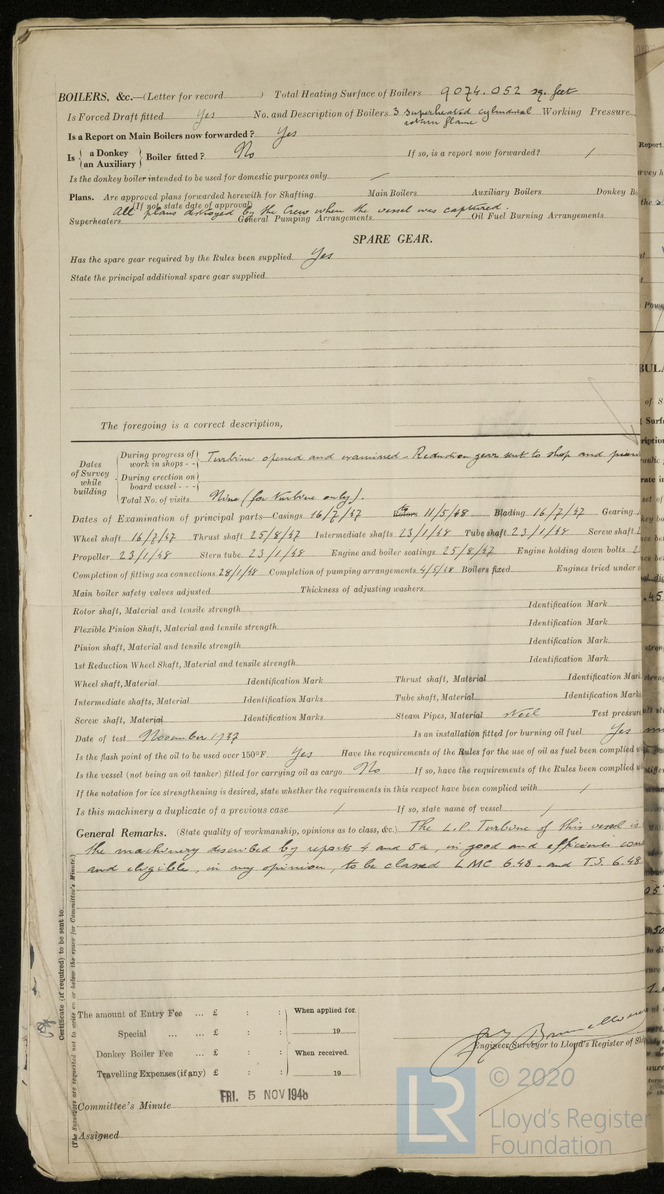 BOILERS, &c.—(Letter for record ) Total Heating Surface of Boilers 9074.052 sq. feet
Is Forced Draft fitted Yes No. and Description of Boilers 3 superheated cylindrical return flame Working Pressure
Is a Report on Main Boilers now forwarded? Yes
Is { a Donkey an Auxiliary } Boiler fitted? No If so, is a report now forwarded? /
Is the donkey boiler intended to be used for domestic purposes only /
Plans. Are approved plans forwarded herewith for Shafting Main Boilers Auxiliary Boilers Donkey B
(If not state date of approval)
All plans destroyed by the Crew when the vessel was captured.
Superheaters General Pumping Arrangements Oil Fuel Burning Arrangements
SPARE GEAR.
Has the spare gear required by the Rules been supplied Yes
State the principal additional spare gear supplied
The foregoing is a correct description,
Dates of Survey while building
During progress of work in shops - - Turbine opened and examined - Reduction gear sent to shop and
During erection on board vessel - - -
Total No. of visits Nine (for Turbine only).
Dates of Examination of principal parts—Casings 16/7/47 11/5/48 Blading 16/7/47 Gearing
Wheel shaft 16/7/47 Thrust shaft 25/8/47 Intermediate shafts 23/1/48 Tube shaft 23/1/48 Screw shaft
Propeller 23/1/48 Stern tube 23/1/48 Engine and boiler seatings 25/8/47 Engine holding down bolts
Completion of fitting sea connections 28/1/48 Completion of pumping arrangements 4/5/48 Boilers fixed Engines tried under
Main boiler safety valves adjusted Thickness of adjusting washers
Rotor shaft, Material and tensile strength Identification Mark
Flexible Pinion Shaft, Material and tensile strength Identification Mark
Pinion shaft, Material and tensile strength Identification Mark
1st Reduction Wheel Shaft, Material and tensile strength Identification Mark
Wheel shaft, Material Identification Mark Thrust shaft, Material Identification Mark
Intermediate shafts, Material Identification Marks Tube shaft, Material Identification Marks
Screw shaft, Material Identification Marks Steam Pipes, Material steel Test pressure
Date of test November 1937 Is an installation fitted for burning oil fuel Yes
Is the flash point of the oil to be used over 150°F. Yes Have the requirements of the Rules for the use of oil as fuel been complied
Is the vessel (not being an oil tanker) fitted for carrying oil as cargo No If so, have the requirements of the Rules been complied
If the notation for ice strengthening is desired, state whether the requirements in this respect have been complied with /
Is this machinery a duplicate of a previous case / If so, state name of vessel /
General Remarks. (State quality of workmanship, opinions as to class, &c.) The L.P. Turbine of this vessel is
the machinery described by reports 4 and 5a, in good and efficient con
and eligible, in my opinion, to be classed LMC 6.48 - and T.S. 6.48
Certificate (if required) to be sent to
(The Surveyors are requested not to write on or below the space for Committee's Minute.)
The amount of Entry Fee ... £ : : When applied for.
Special ... ... £ : : 19
Donkey Boiler Fee ... £ : : When received.
Travelling Expenses (if any) £ : : 19
Engineer Surveyor to Lloyd's Register of Sh
FRI. 5 NOV 1948
Committee's Minute
Assigned
© 2020
LR
Lloyd's Register
Foundation